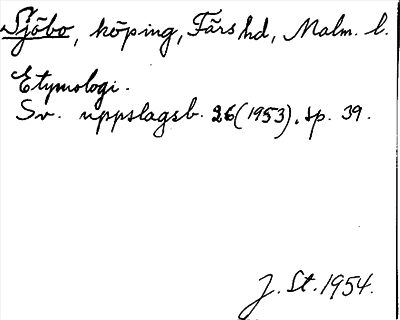 Sjöbo, köping, Färs hd, Malm. l.
Etymologi.
Sv. uppslagsb. 26 (1953), sp. 39.
J. St. 1954.